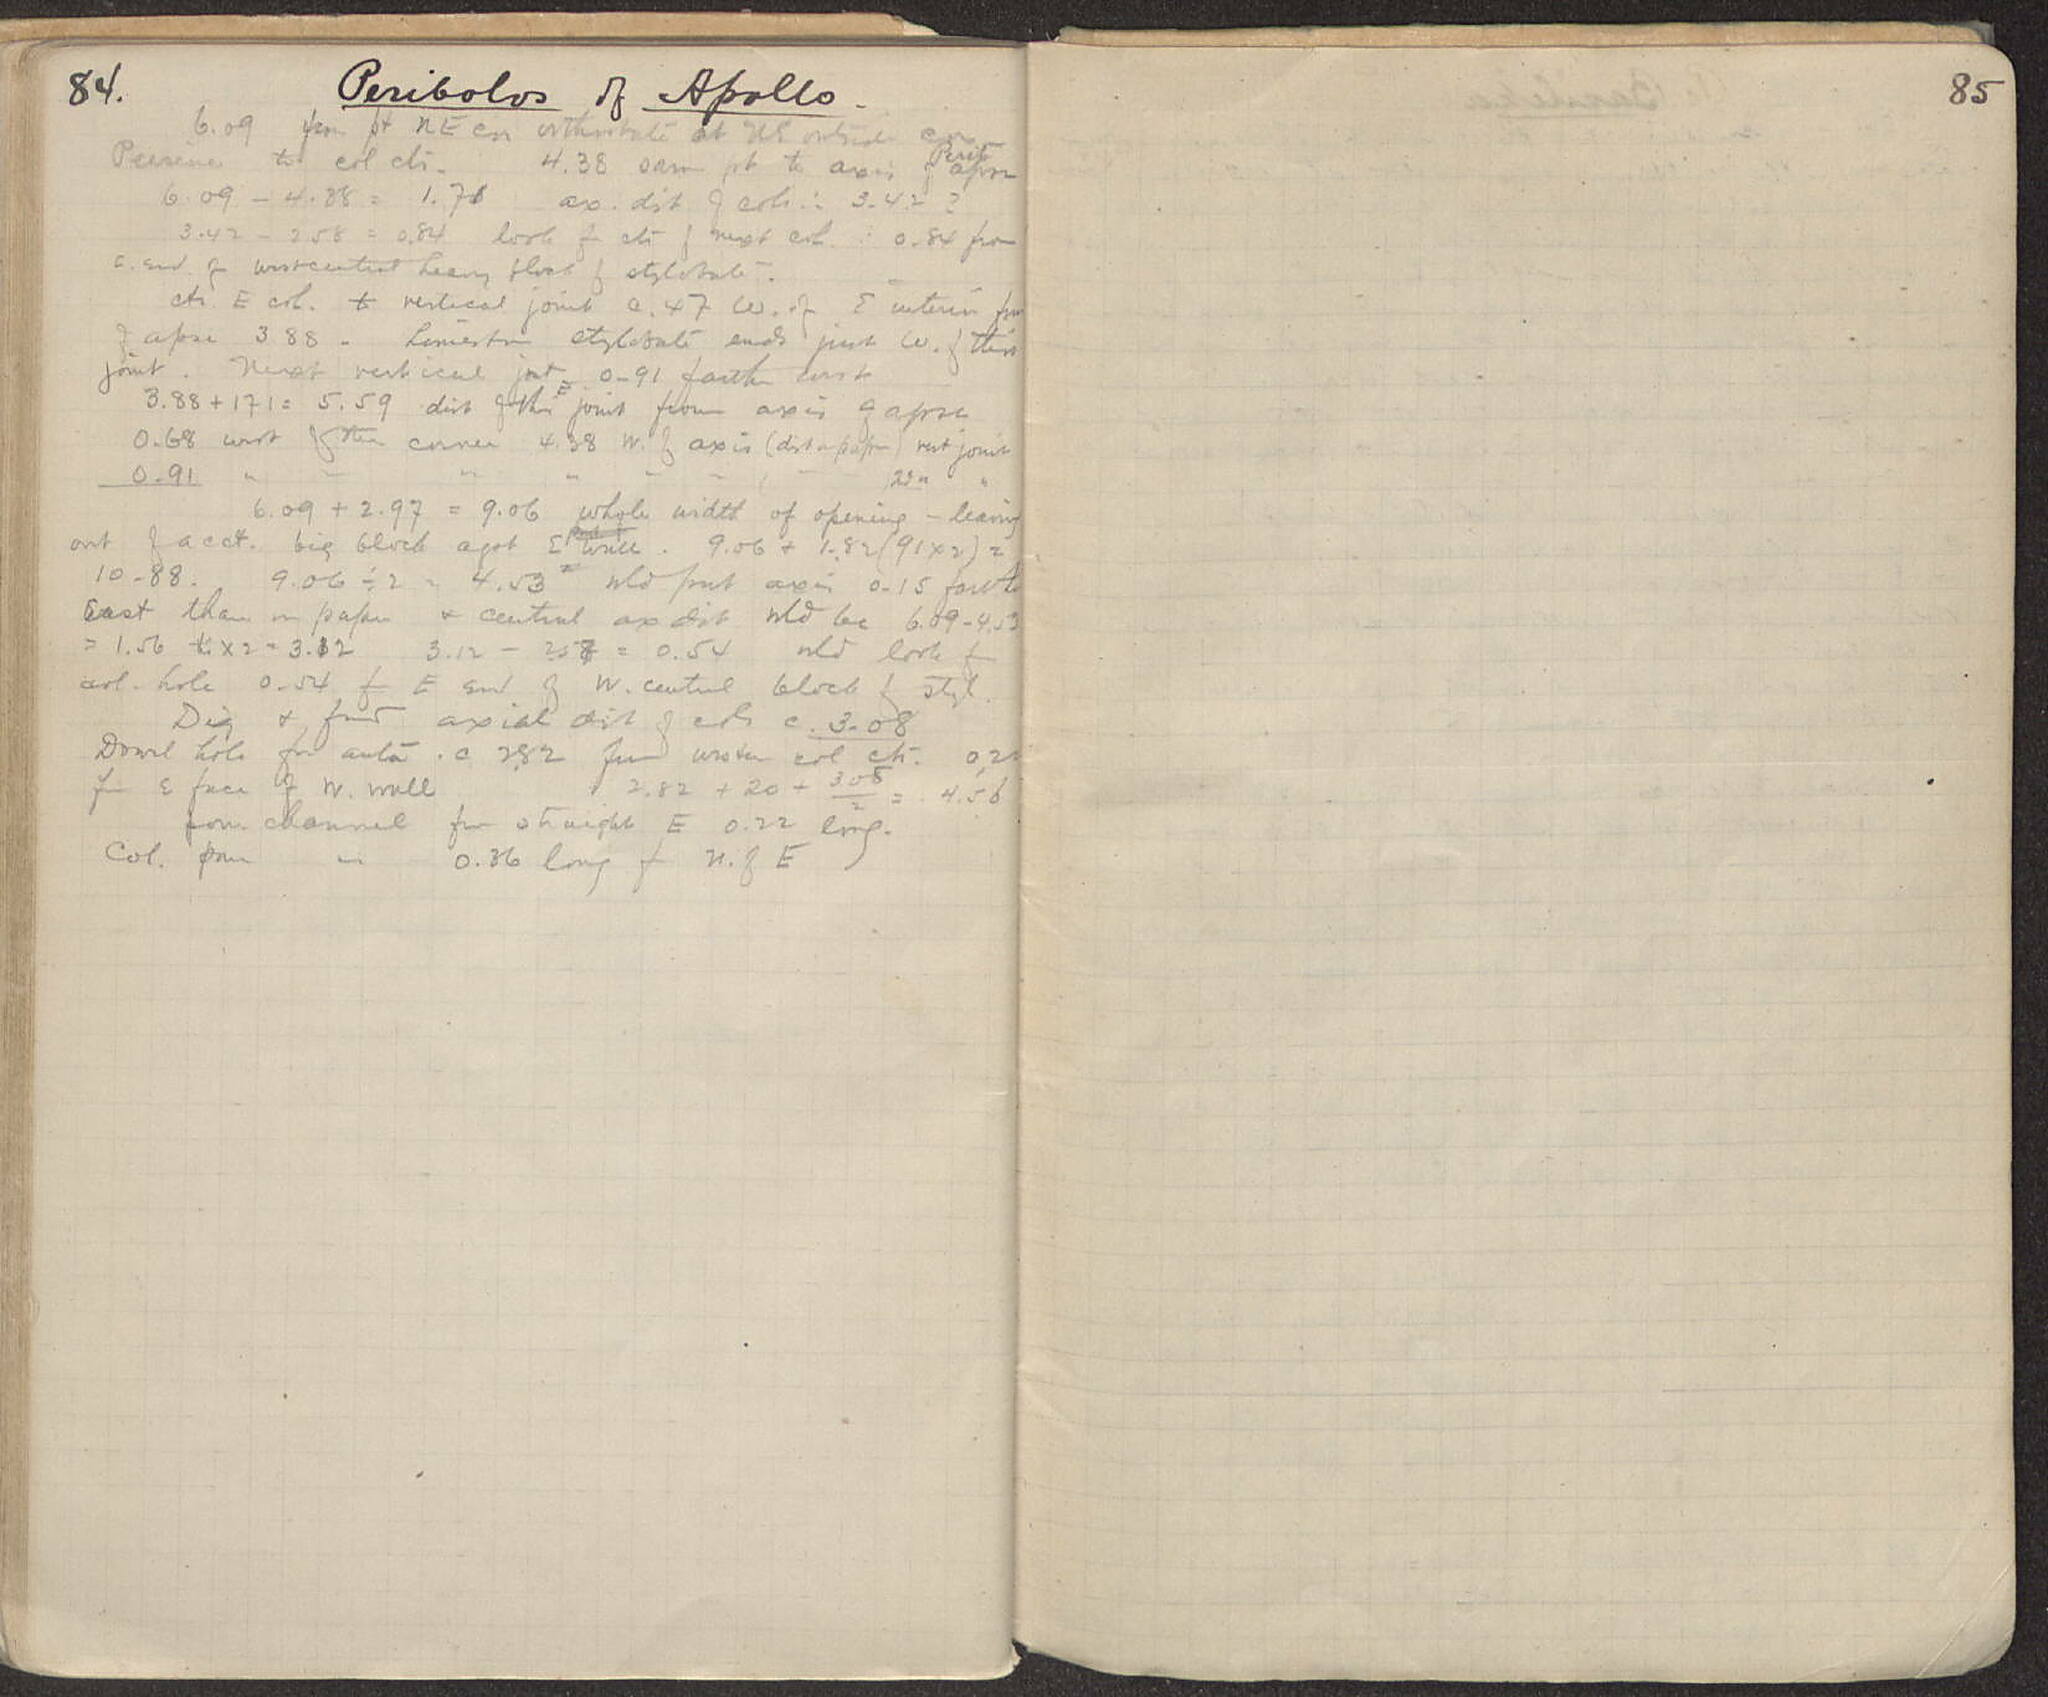 84.
Peribolos of Apollo.
6.09 from pt NE cor orthostate at NE outside cor
Peirene to col ctr. 4.38 same pt to axis of Perib apse
6.09 - 4.38 = 1.71 ax. dist of cols ∴ 3.42 ?
3.42 - 258 = 0.84 look for ctr of next col. 0.84 from
e. end of west central heavy block of stylobate.
ctr E col. to vertical joint c. 47 W. of E interior
of apse 388 - Limestone stylobate ends just W. of this
joint. Next vertical joint 0-91 farther west
3.88 + 171 = 5.59 dist of this E joint from axis of apse
0.68 west of the corner 4.38 W. of axis (dist on paper) vert joint
0.91 " " " " " " " 2nd "
6.09 + 2.97 = 9.06 whole width of opening - leaving
out of acct. big block agst E wall. 9.06 + 1.82 (91x2) =
10-88. 9.06 ÷ 2 = 4.53 wld put axis 0-15 farther
East than on paper & central ax dist wld be 6.09-4.53
= 1.56 x 2 = 3.12 3.12 - 258 = 0.54 wld look for
col. hole 0-54 f E end of W. central block of styl.
Dig & find axial dist of cols c. 3-08
Dowel hole for anta c 282 from western col ctr. 0,2
fr E face of W. wall 2.82 + 20 + 308/2 = 4.56
pour channel fr straight E 0.22 long.
Col. pour " 0.36 long fr N. of E
85